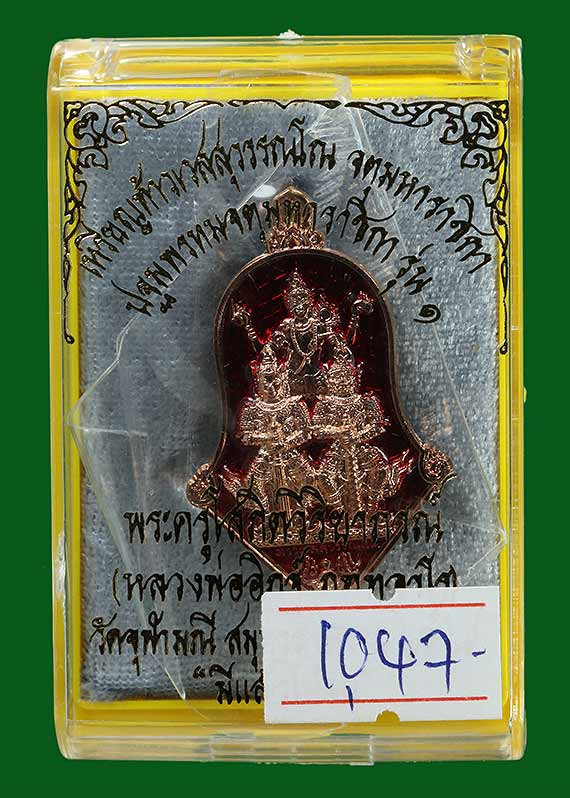 เหรียญท้าวเวสสุวรรณโณ จตุมหาราชิกา
ปฐมพรหมจตุมหาราชิกา รุ่น ๑
พระครูโสภิตวิริยาภรณ์
(หลวงพ่ออิฏฐ์
วัดจุฬามณี สมุ
"มีแส
1,047-